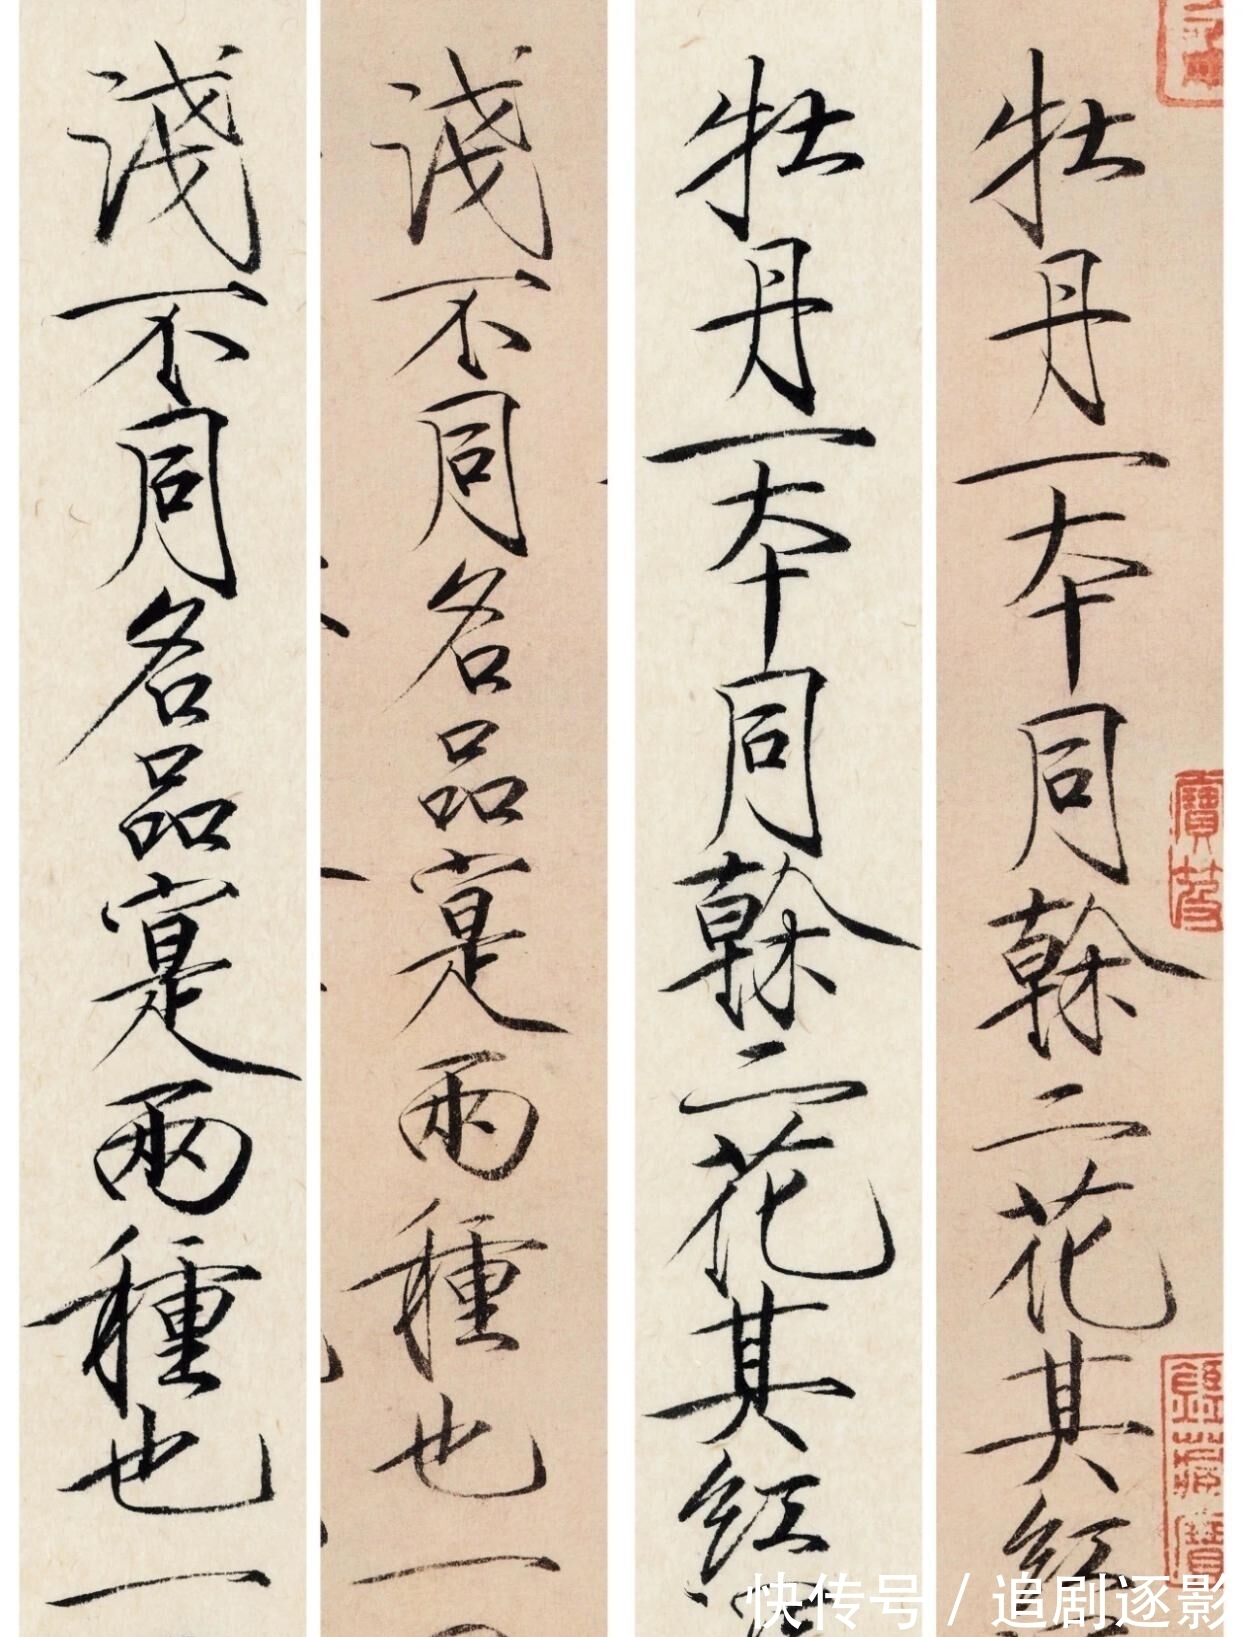 牡丹一本同榦二花其红
牡丹一本同榦二花其红
淺不同名品寔兩種也一
淺不同名品寔兩種也一
快传号 / 追剧逐影